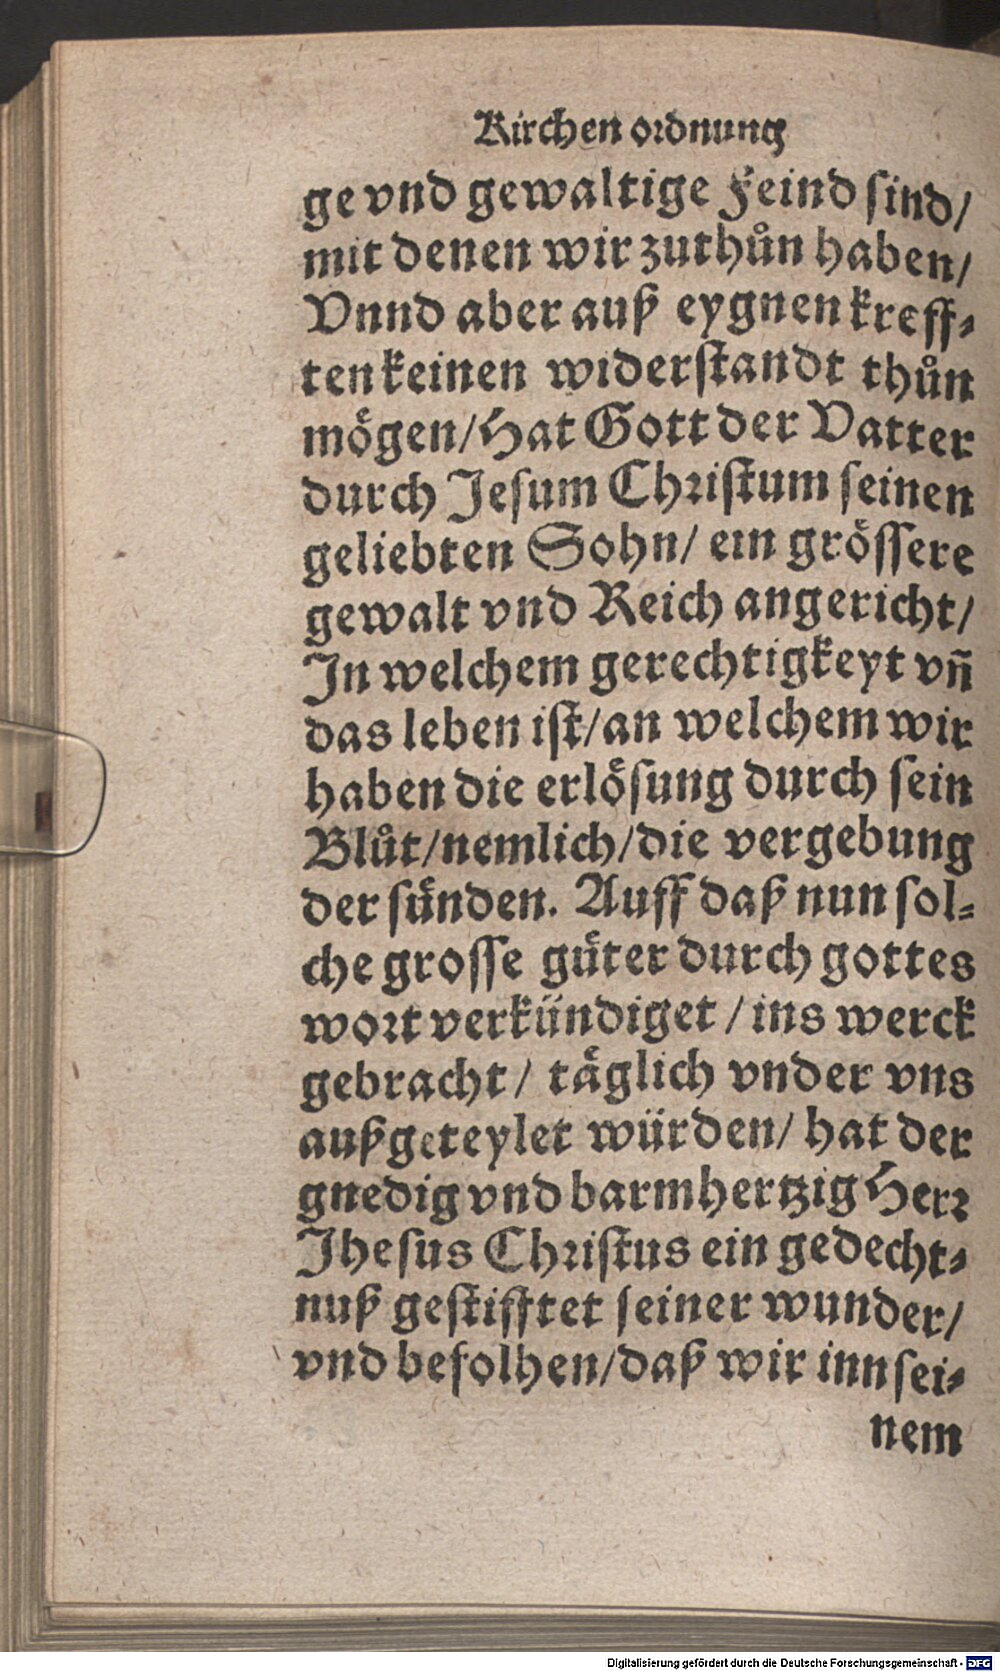 Kirchen ordnung
ge vnd gewaltige Feind sind/
mit denen wir zuthůn haben/
Vnnd aber auß eygnen kreff⸗
ten keinen widerstandt thůn
mögen/Hat Gott der Vatter
durch Jesum Christum seinen
geliebten Sohn/ ein grössere
gewalt vnd Reich angericht/
In welchem gerechtigkeyt vñ
das leben ist/an welchem wir
haben die erlösung durch sein
Blůt/nemlich/die vergebung
der sünden. Auff daß nun sol⸗
che grosse güter durch gottes
wort verkündiget / ins werck
gebracht/ täglich vnder vns
außgeteylet würden/ hat der
gnedig vnd barmhertzig Herr
Jhesus Christus ein gedecht⸗
nuß gestifftet seiner wunder/
vnd befolhen/daß wir inn sei⸗
nem
Digitalisierung gefördert durch die Deutsche Forschungsgemeinschaft - DFG